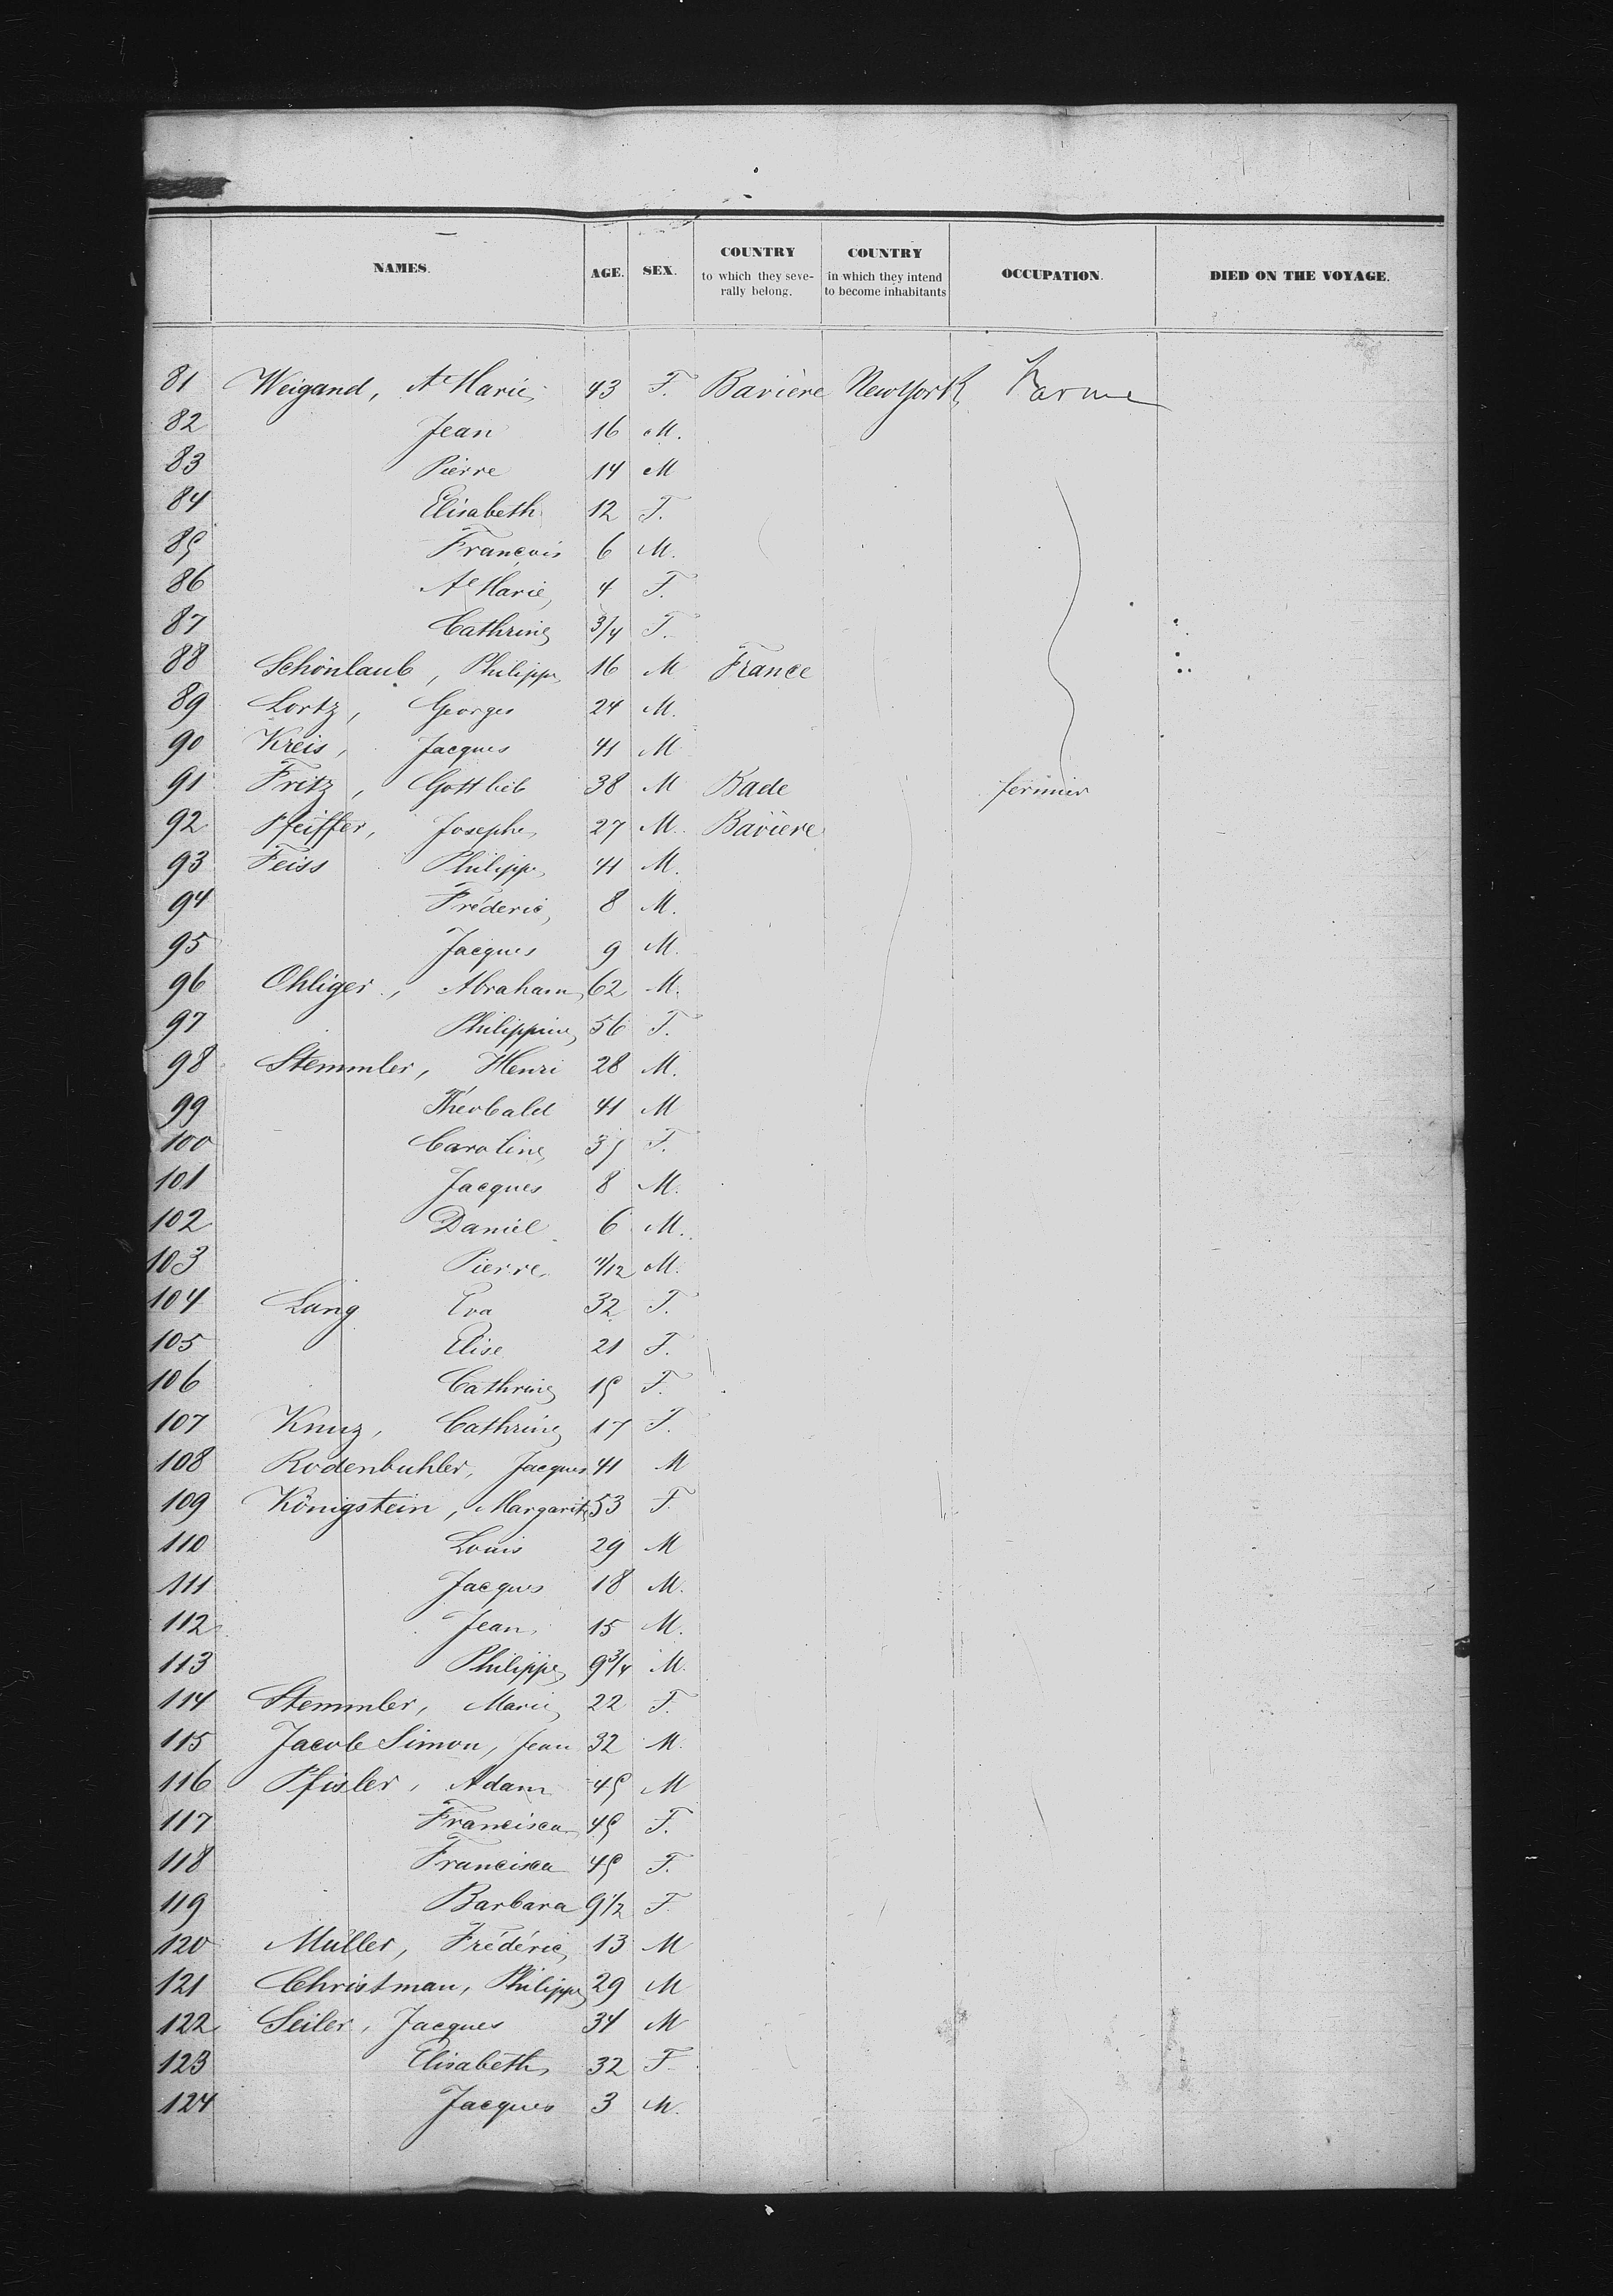 NAMES. AGE. SEX. COUNTRY to which they seve-rally belong. COUNTRY in which they intend to become inhabitants OCCUPATION. DIED ON THE VOYAGE.
81 Weigand, Ae Marie 43 F. Bavière New York
82 Jean 16 M.
83 Pierre 14 M
84 Elisabeth 12 F.
85 François 6 M.
86 Ae Marie 4 F.
87 Cathrine 3/4 F.
88 Schönlaub, Philippe 16 M France
89 Lortz, Georges 24 M.
90 Kreis, Jacques 41 M
91 Fritz, Gottlieb 38 M Bade fermier
92 Pfeiffer, Josephe 27 M. Bavière
93 Feiss Philippe 41 M.
94 Fréderic 8 M.
95 Jacques 9 M.
96 Ohliger, Abraham 62 M.
97 Philippine 56 F.
98 Stemmler, Henri 28 M.
99 Théobald 41 M
100 Caroline 35 F.
101 Jacques 8 M.
102 Daniel 6 M.
103 Pierre 11/12 M.
104 Lang Eva 32 F.
105 Elise 21 F.
106 Cathrine 15 F.
107 Cathrine 17 F.
108 Rodenbuhler, Jacques 41 M
109 Königstein, Margarite 53 F.
110 Louis 29 M
111 Jacques 18 M.
112 Jean 15 M.
113 Philippe 9 3/4 M.
114 Stemmler, Marie 22 F.
115 Jacob Simon, Jean 32 M.
116 Pfisler, Adam 45 M
117 Francisca 45 F.
118 Francisca 45 F.
119 Barbara 9 1/2 F.
120 Müller, Frédéric 13 M
121 Christman, Philippe 29 M
122 Seiler, Jacques 34 M
123 Elisabeth 32 F
124 Jacques 3 M.